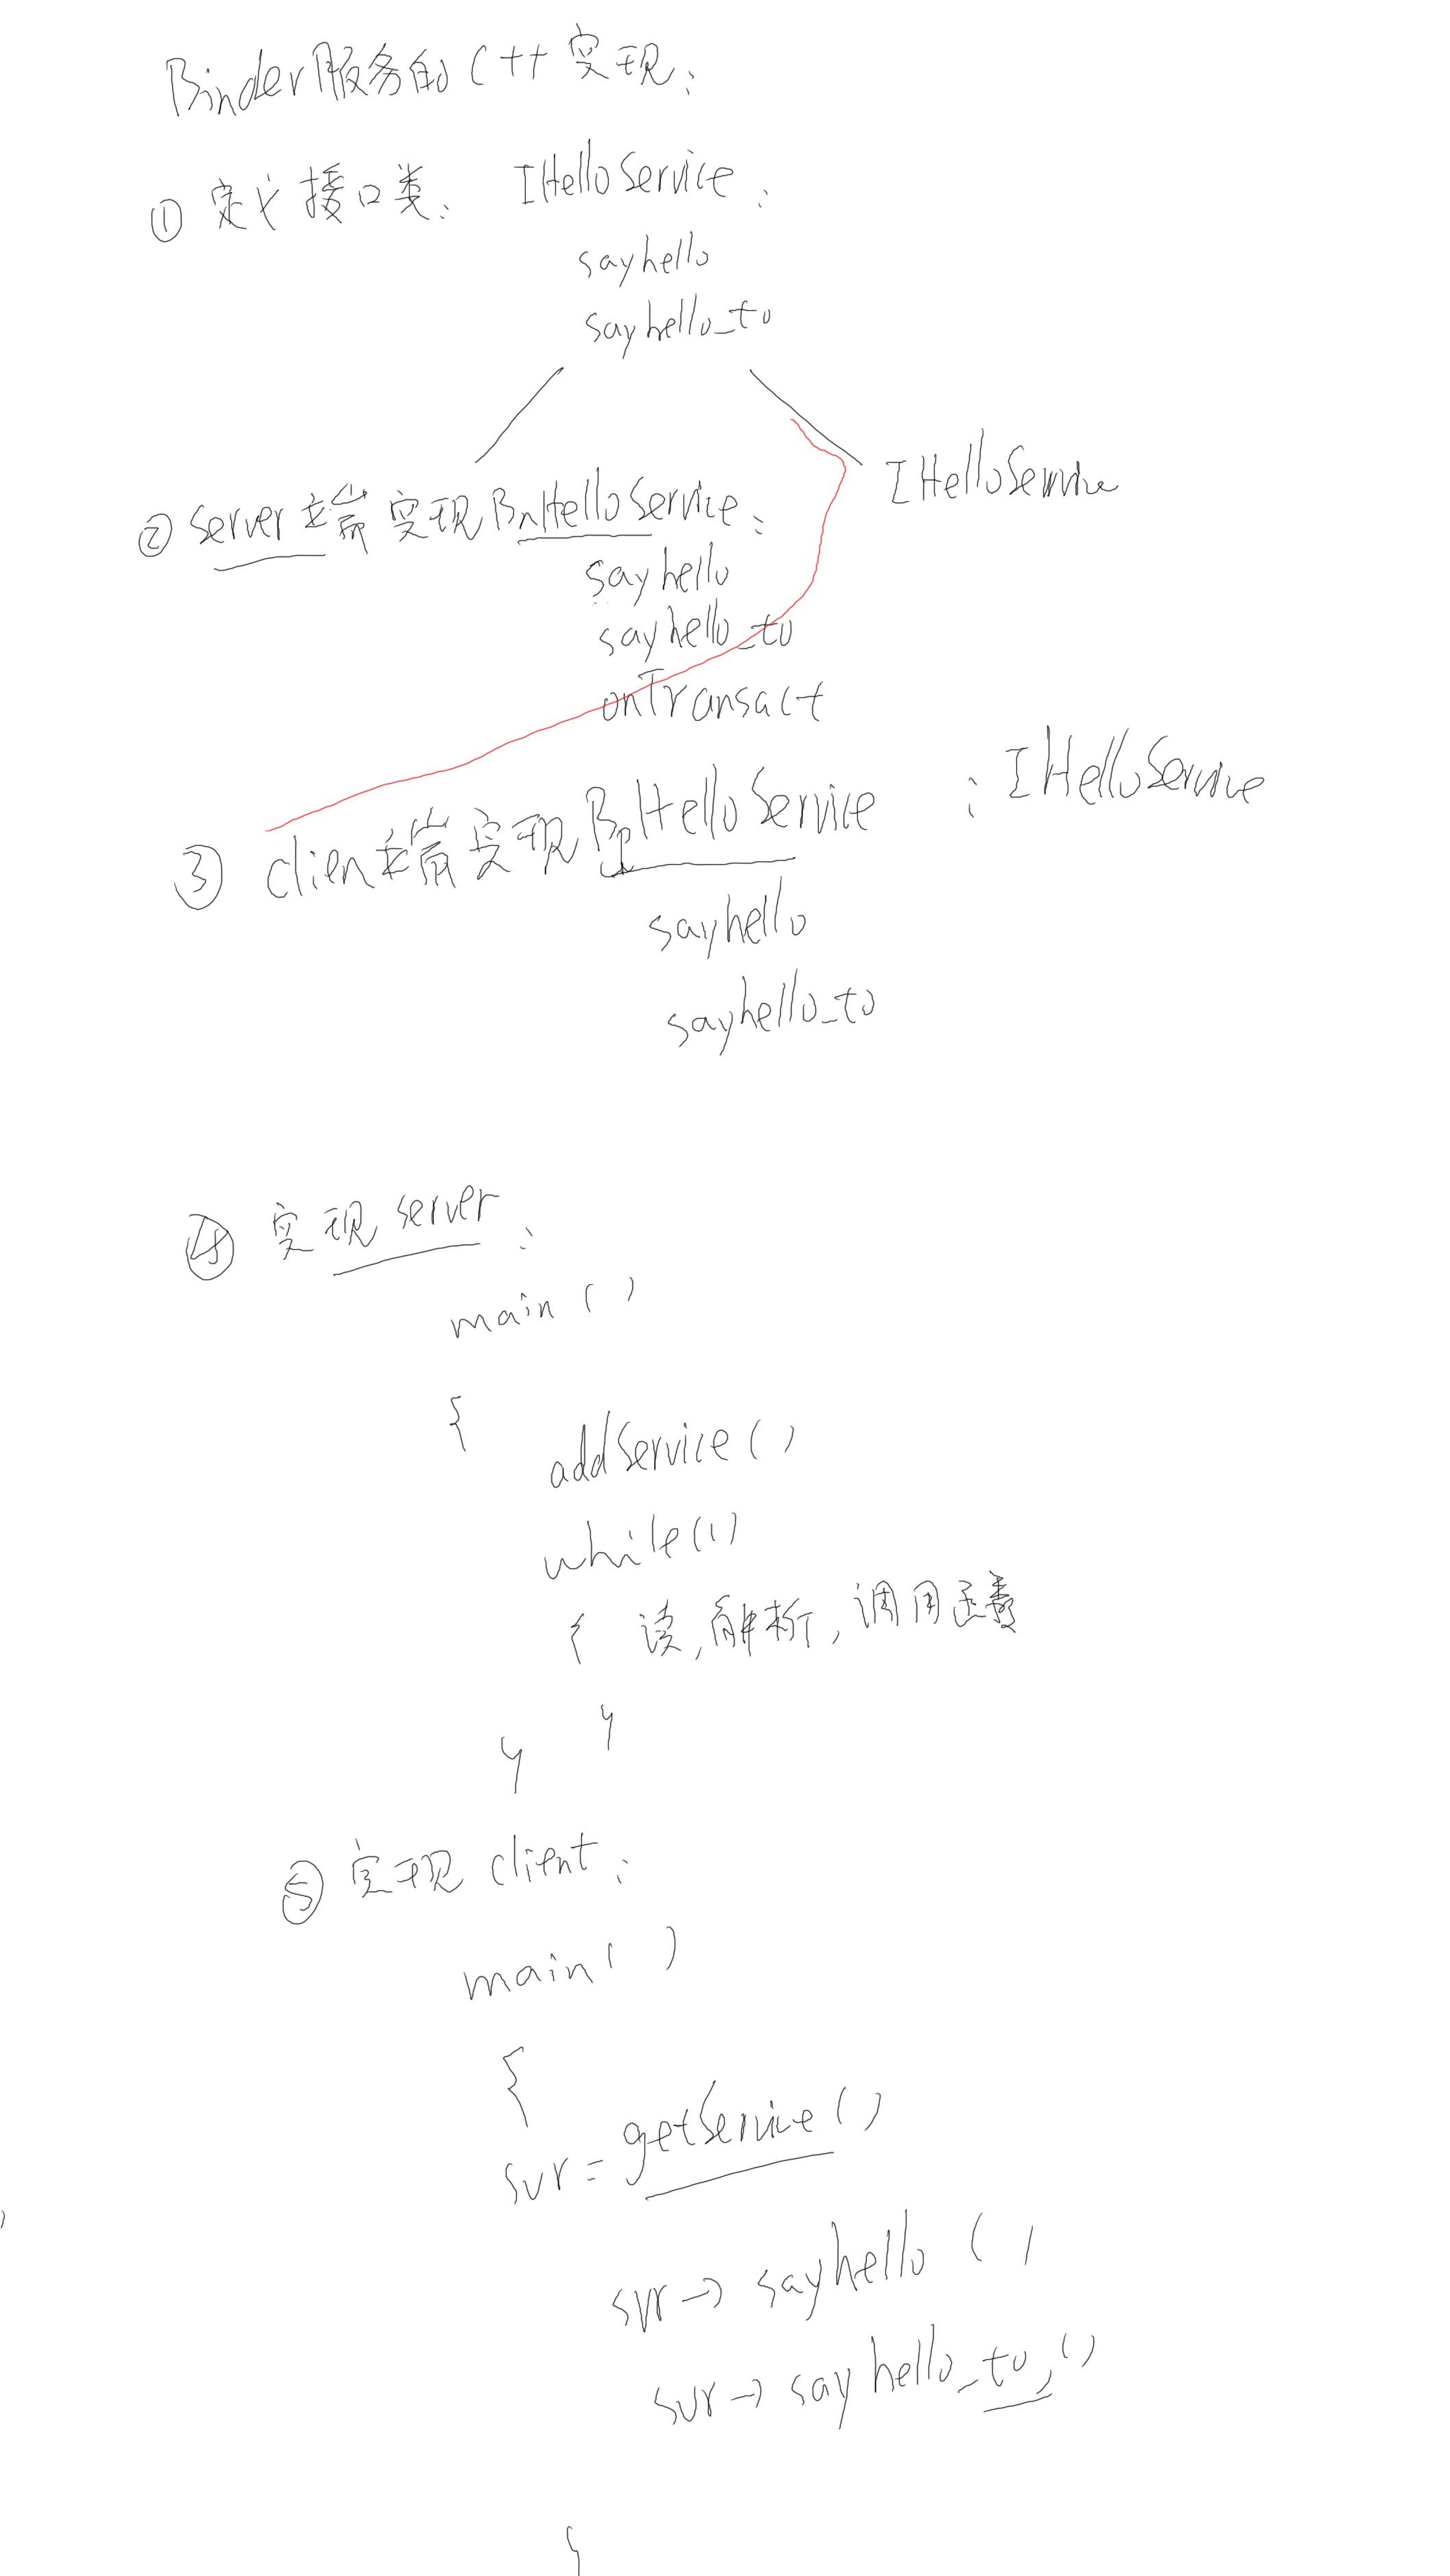 Binder服务的C++实现:
① 定义接口类: IHelloService:
sayhello
sayhello_to
② server端实现BnHelloService: IHelloService
sayhello
sayhello_to
onTransact
③ client端实现BpHelloService : IHelloService
sayhello
sayhello_to
④ 实现server:
main()
{
addService()
while(1)
{ 读,解析,调用函数
}
}
⑤ 实现 client:
main()
{
svr = getService()
svr→sayhello()
svr→sayhello_to()
}